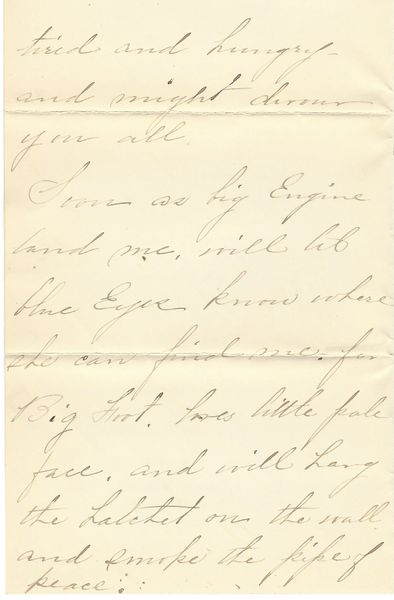 tired and hungry-
and might devour
you all.
Soon as big Engine
land me, will let
blue Eyes know where
she can find me. for
Big Foot. loves little pale
face, and will hang
the hatchet on the wall
and smoke the pipe of
peace.